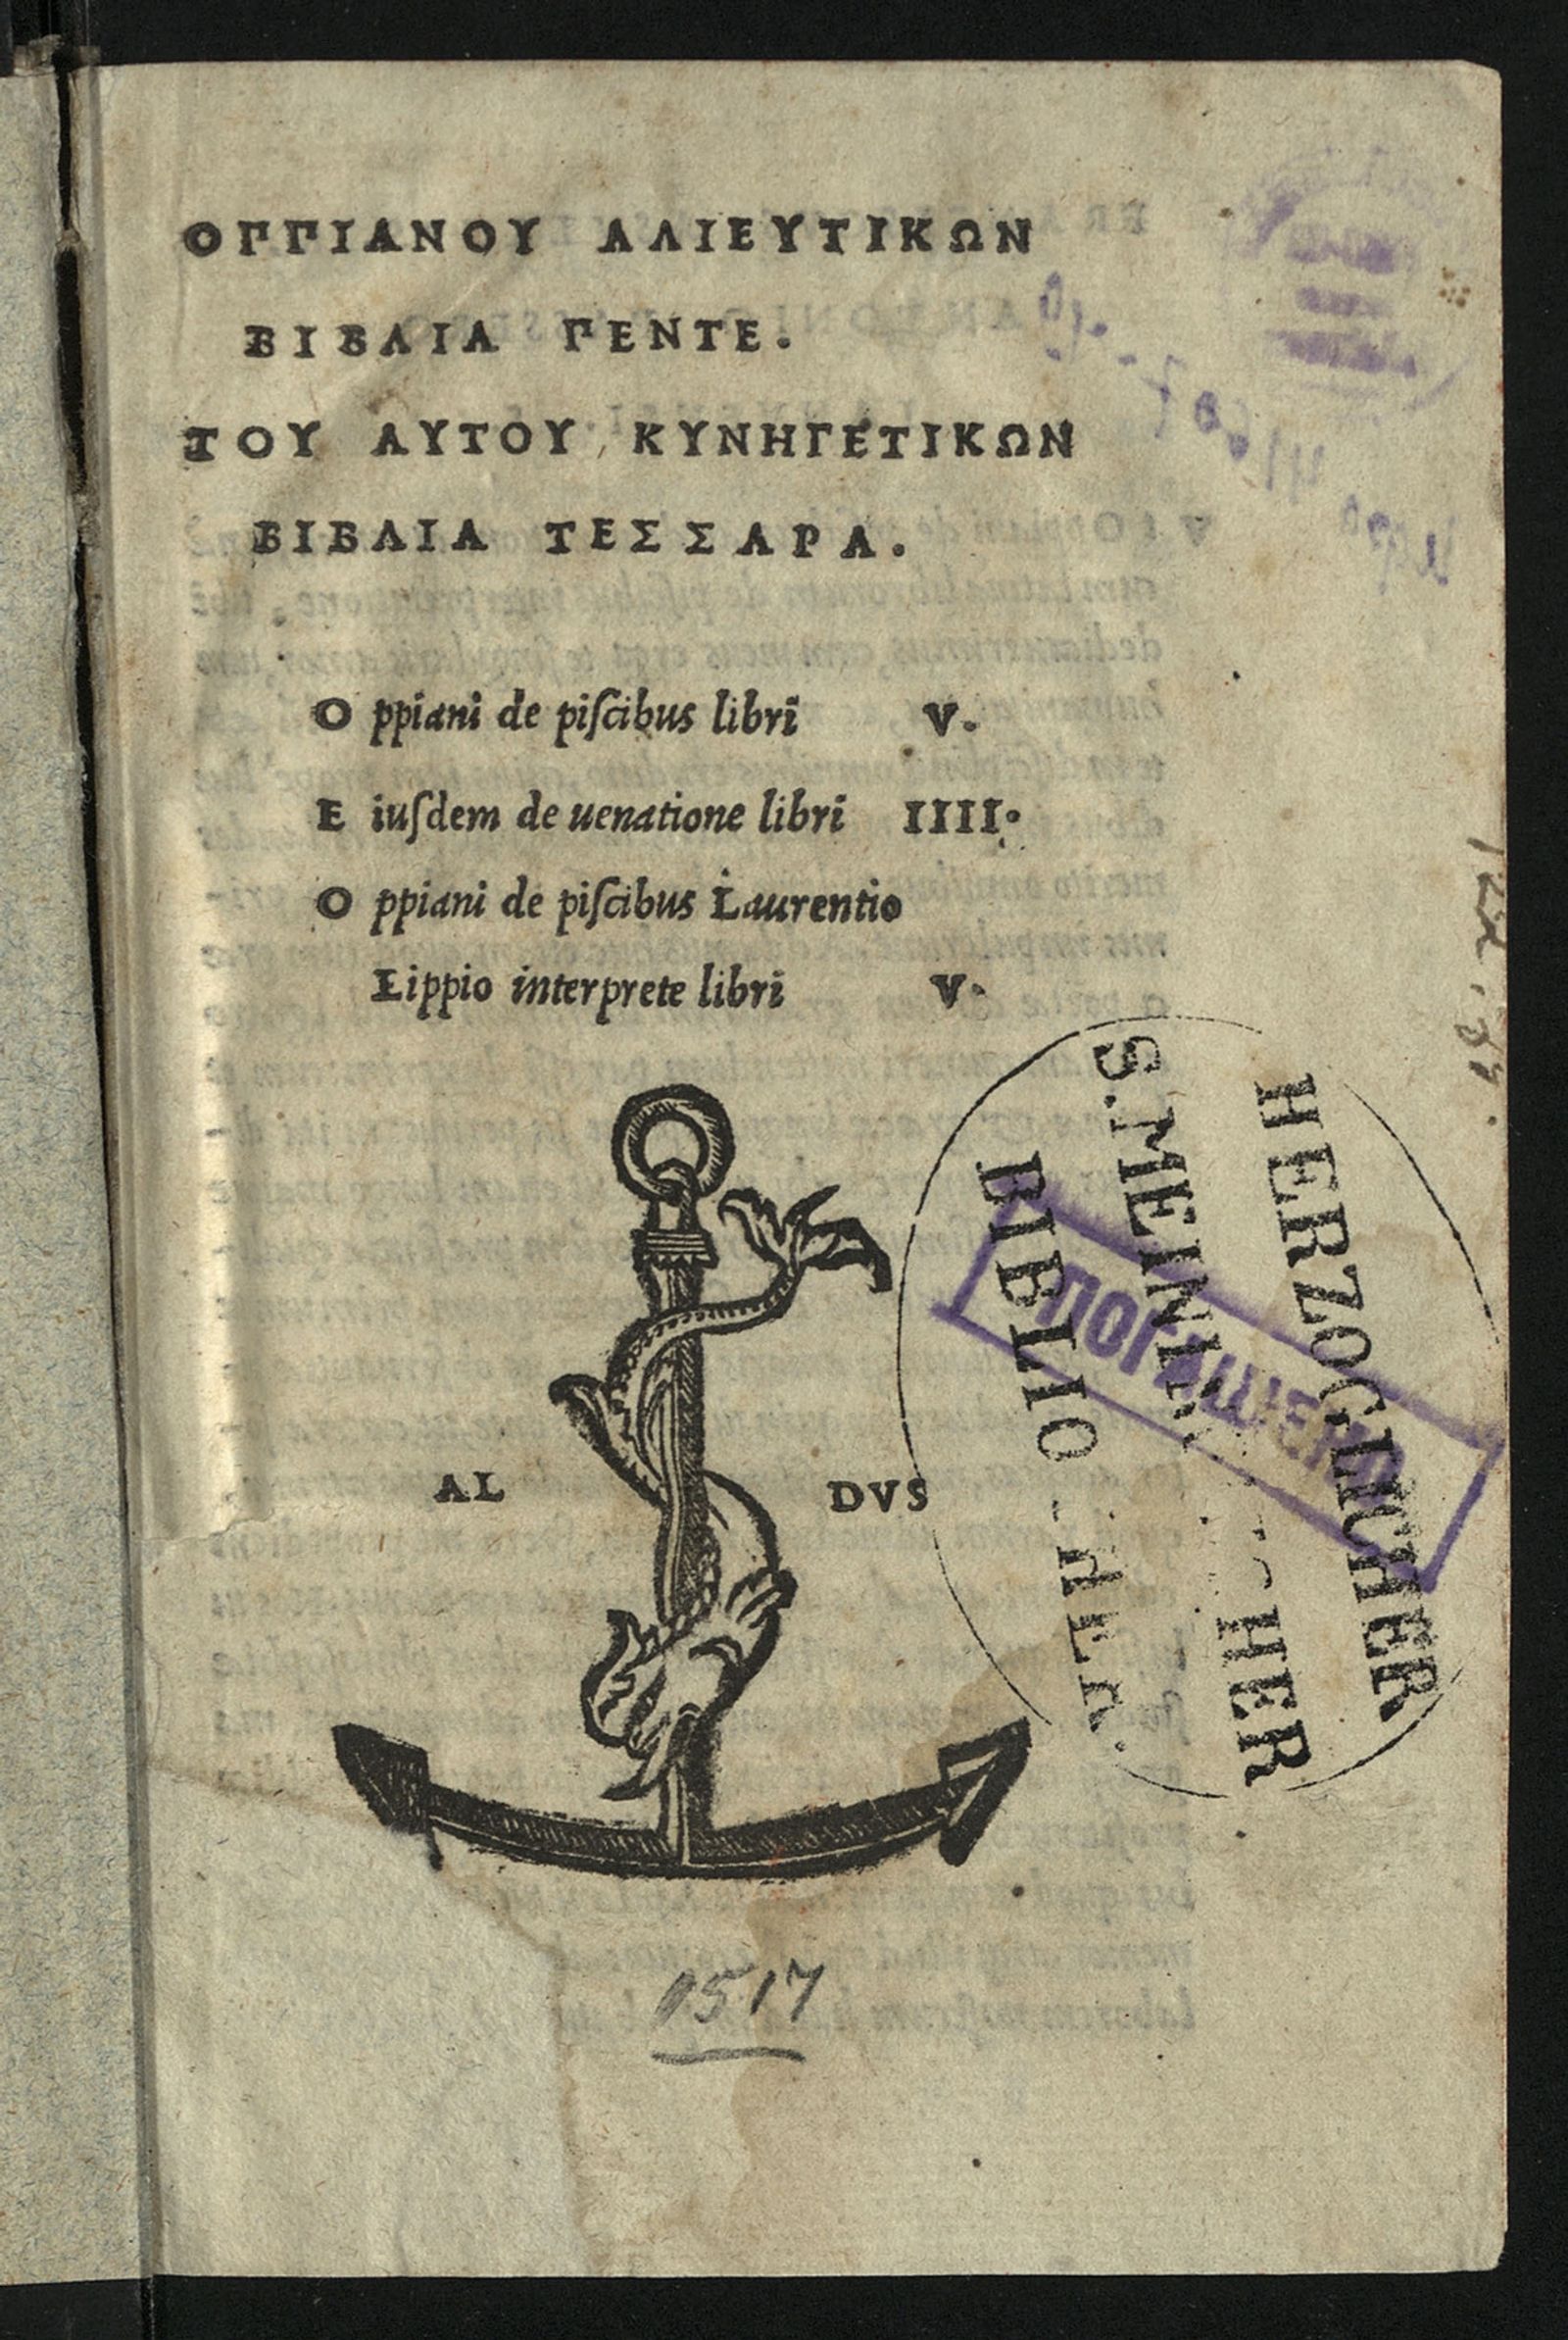 ΟΠΠΙΑΝΟΥ ΑΛΙΕΥΤΙΚΩΝ
ΒΙΒΛΙΑ ΠΕΝΤΕ.
ΤΟΥ ΑΥΤΟΥ ΚΥΝΗΓΕΤΙΚΩΝ
ΒΙΒΛΙΑ ΤΕΣΣΑΡΑ.
O ppiani de piſcibus libri V.
E iuſdem de uenatione libri IIII.
O ppiani de piſcibus Laurentio
Lippio interprete libri V.
AL DVS
HERZOGLICHER
S. MEIN CHER
BIBLIOTHEK.
ПОГАШЕНО
1517